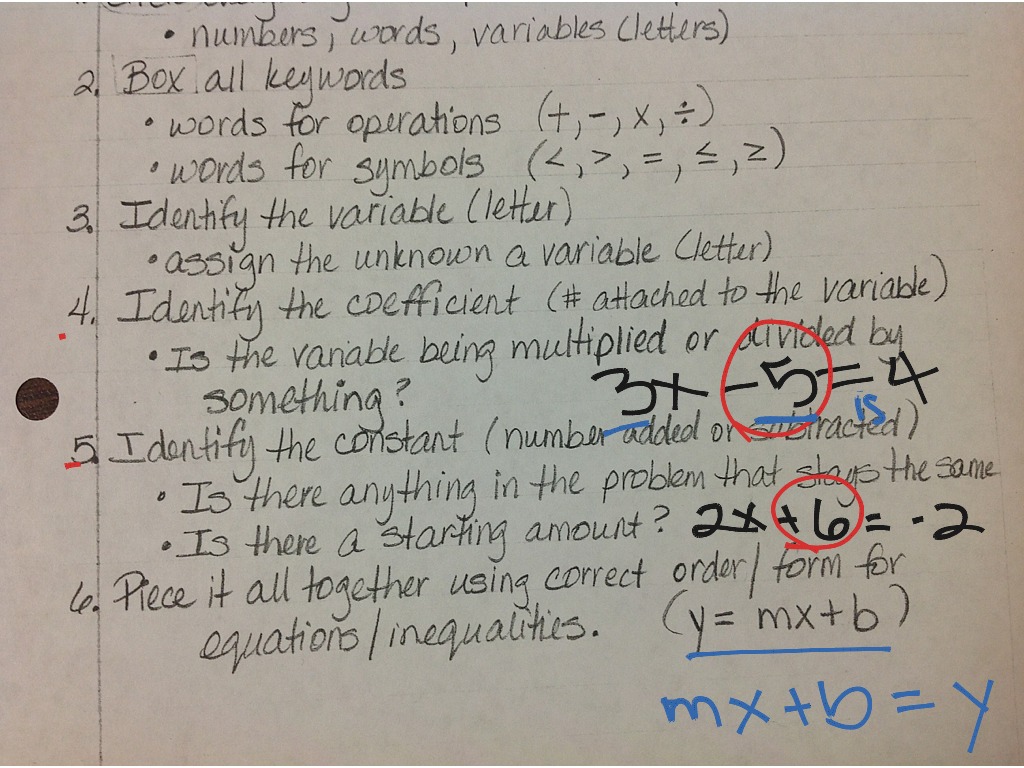 • numbers, words, variables (letters)
2. Box all keywords
• words for operations (+, -, x, ÷)
• words for symbols (<, >, =, ≤, ≥)
3. Identify the variable (letter)
• assign the unknown a variable (letter)
4. Identify the coefficient (# attached to the variable)
• Is the variable being multiplied or divided by
something?
3x - 5 = 4
is
5. Identify the constant (number added or subtracted)
• Is there anything in the problem that stays the same
• Is there a starting amount?
2x + 6 = -2
6. Piece it all together using correct order/form for
equations/inequalities. (y = mx + b)
mx + b = y